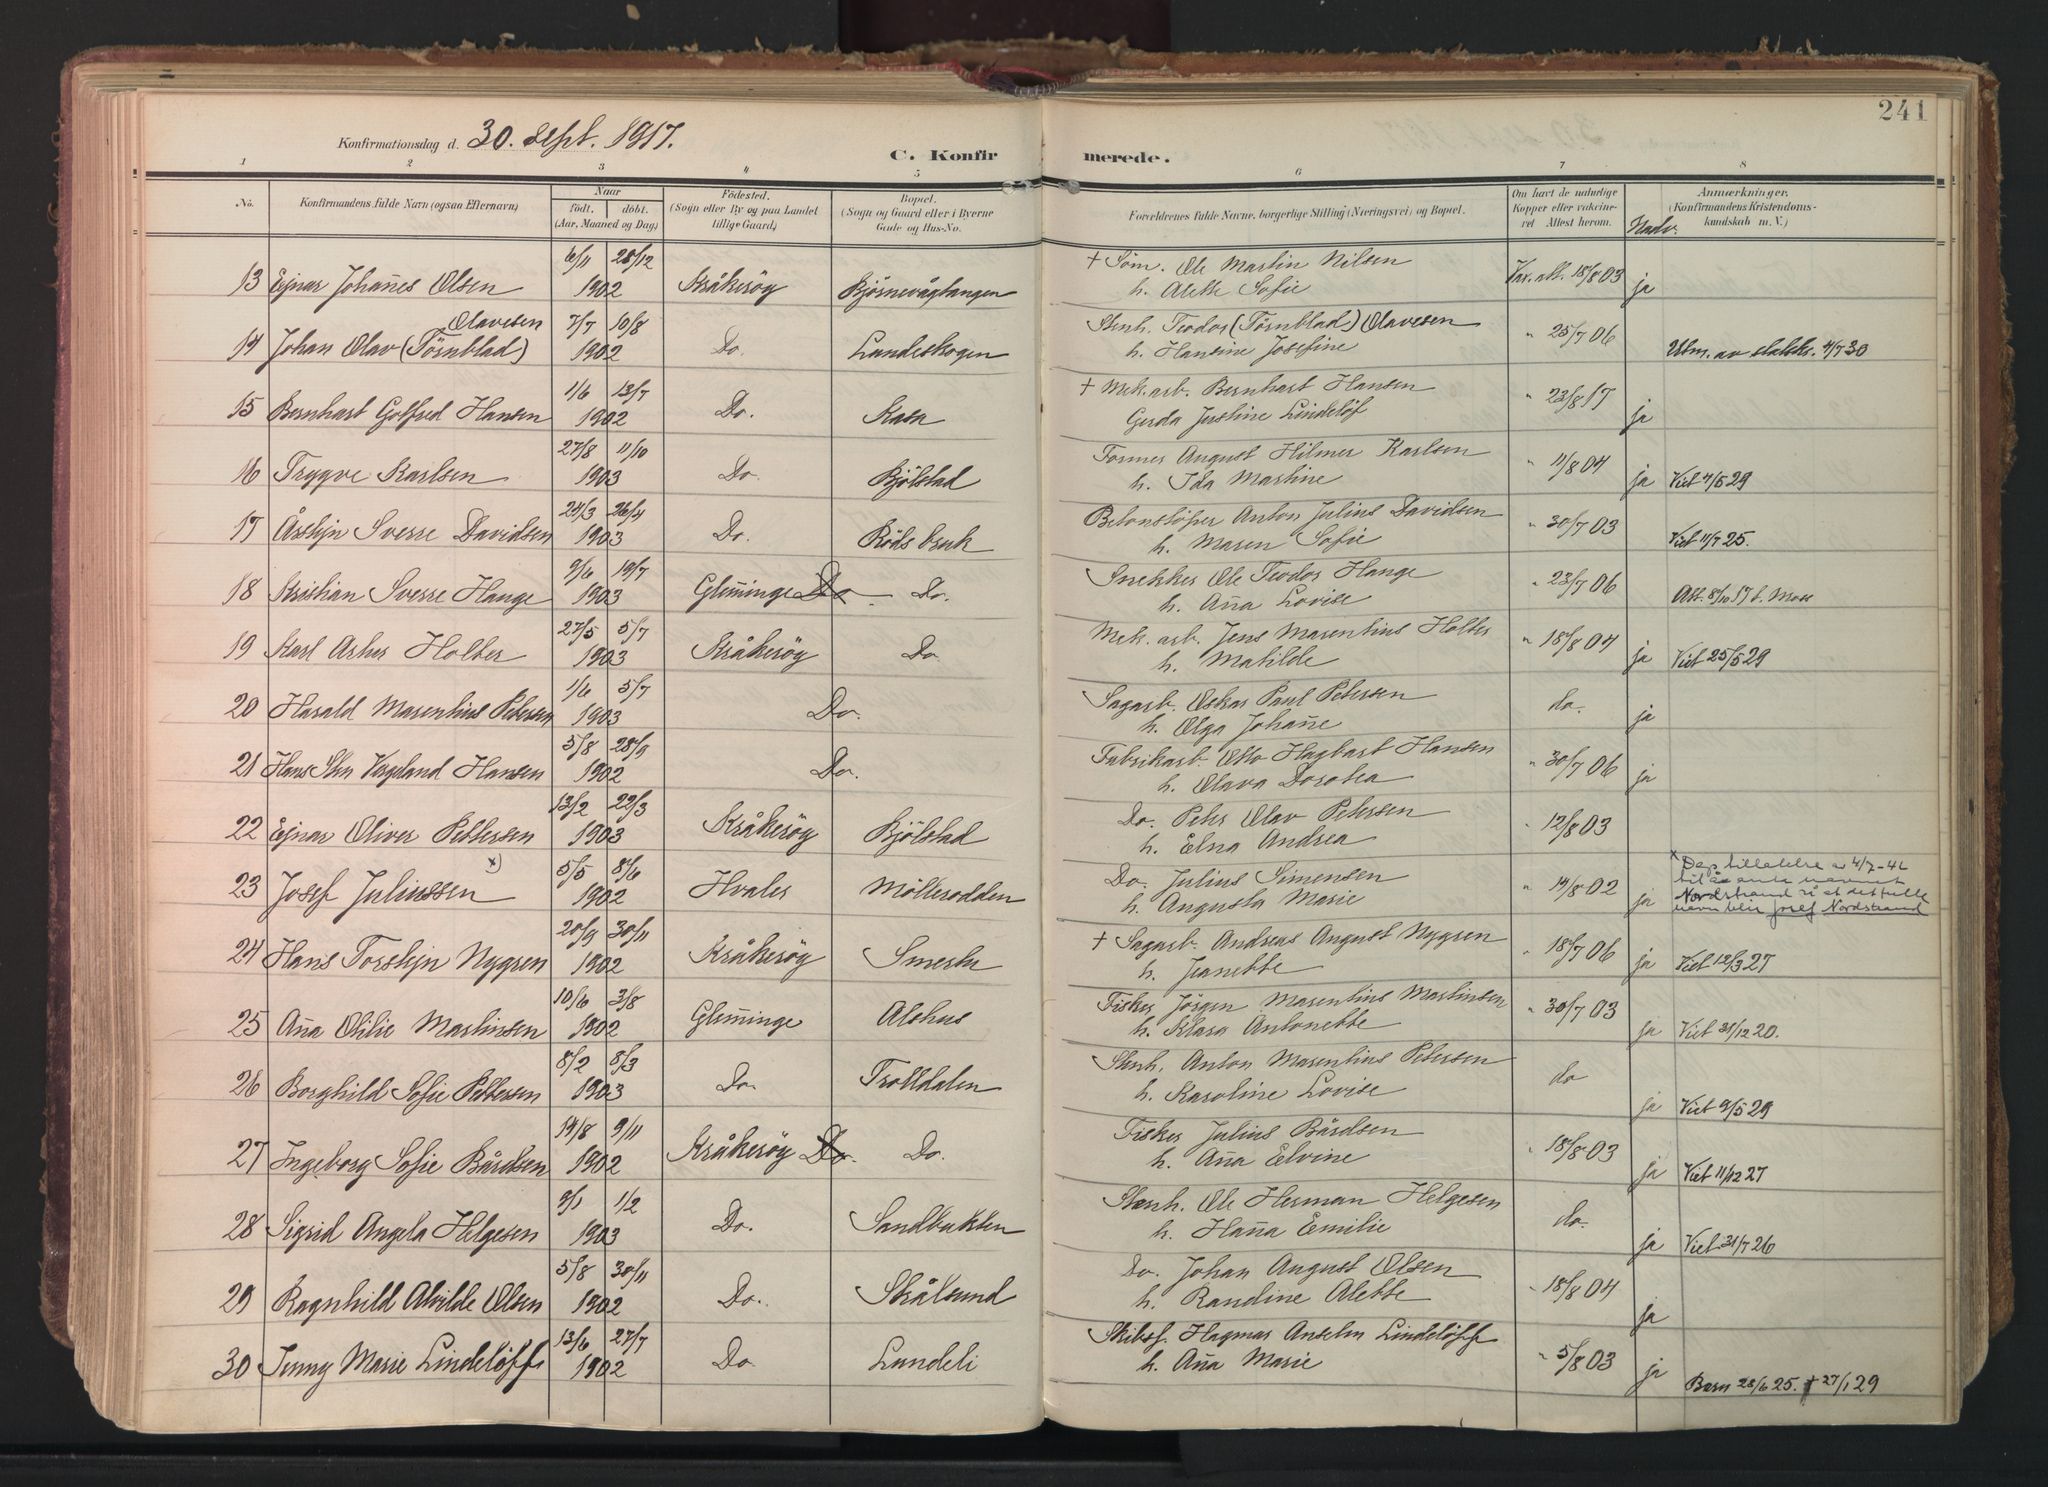 241
Konfirmationsdag d. 30. Sept. 1917.
C. Konfir merede.
1 2 3 4 5 6 7 8
No. Konfirmandens fulde Navn (ogsaa Efternavn) Naar födt. döbt. (Aar, Maaned og Dag) Födested. (Sogn eller By og paa Landet tillige Gaard) Bopæl. (Sogn og Gaard eller i Byerne Gade og Hus-No. Forældrenes fulde Navne, borgerlige Stilling (Næringsvei) og Bopæl. Om havt de naturlige Kopper eller vakcineret. Attest herom. Nadv. Anmærkninger. (Konfirmandens Kristendomskundskab m. V.)
13 Ejnar Johan̄es Olsen 6/11 28/12 1902 Kråkeröy Bjørnevågtangen † Söm. Ole Martin Nilsen h. Alette Sofie Vax. att. 18/8 03 ja
14 Johan Olav (Törnblad) Olavesen 7/7 10/8 1902 Do. Lundeskogen Stenh. Teodor (Törnblad) Olavesen h. Hansine Josefine " 25/7 06 Utm. av statsk. 4/7 30
15 Bernhart Golfred Hansen 1/6 13/7 1902 Do. Kasa † Mek. arb. Bernhart Hansen Gerda Justine Lindelöf " 23/8 17 ja
16 Trygve Karlsen 27/8 11/10 1903 Do. Bjölstad Former August Hilmer Karlsen h. Ida Martine " 11/8 04 ja Viet 4/5 29
17 Åstejn Sverre Davidsen 24/3 26/4 1903 Do. Röds bruk Betonstöper Anton Julius Davidsen h. Maren Sofie " 30/7 03 Viet 11/7 25.
18 Kristian Sverre Hauge 9/6 19/7 1903 Glem̄inge Do. Do. Snekker Ole Teodor Hauge h. An̄a Lovise " 23/7 06 Att. 8/10 17 t. Moss
19 Karl Asker Holter 27/5 5/7 1903 Kråkeröy Do Mek. arb. Jens Marentius Holter h. Matilde " 18/8 04 ja Viet 25/5 29
20 Harald Marentius Petersen 1/6 5/7 1903 Do. Sagarb. Oskar Paul Petersen h. Olga Johan̄e do. ja
21 Hans Sten Vegeland Hansen 5/8 28/9 1902 Do. Fabrikarb. Otto Hagbart Hansen h. Olava Dorotea " 30/7 06 ja
22 Ejnar Oliver Pettersen 13/2 22/3 1903 Kråkeröy Bjölstad Do. Peter Olav Petersen h. Elna Andrea " 12/8 03
23 Josef Juliussen x) 5/5 8/6 1902 Hvaler Möllerodden Do. Julius Simensen h. Augusta Marie " 19/8 02 ja x Dep tillatelse av 4/7-42 til å anta navnet Nordstrand så at det fulle navn blir Josef Nordstrand
24 Hans Torstejn Nygren 20/9 30/11 1902 Kråkeröy Smertu † Sagarb. Andreas August Nygren h. Jeanette " 18/7 06 ja Viet 12/3 27
25 An̄a Otilie Martinsen 10/6 3/8 1902 Glem̄inge Alshus Fisker Jörgen Marentius Martinsen h. Klara Antonette " 30/7 03 ja Viet 31/12 20.
26 Borghild Sofie Pettersen 8/2 8/3 1903 Do. Trolldalen Stenh. Anton Marentius Petersen h. Karoline Lovise do ja Viet 9/5 29
27 Ingeborg Sofie Bårdsen 14/8 9/11 1902 Kråkeröy Do. Do. Fisker Julius Bårdsen h. An̄a Elvine " 18/8 03 ja Viet 11/12 27
28 Sigrid Angela Helgesen 9/1 1/2 1903 Do. Sandbukten Stenh. Ole Herman Helgesen h. Han̄a Emilie do. ja Viet 31/7 26
29 Ragnhild Alvilde Olsen 5/8 30/11 1902 Do. Skålsund Do. Johan August Olsen h. Randine Alette " 18/8 04 ja
30 Jenny Marie Lindelöff 13/6 27/7 1902 Do. Lundeli Skibsf. Hagmar Anselm Lindelöff h. An̄a Marie " 5/8 03 ja Barn 28/6 25. † 27/1 29